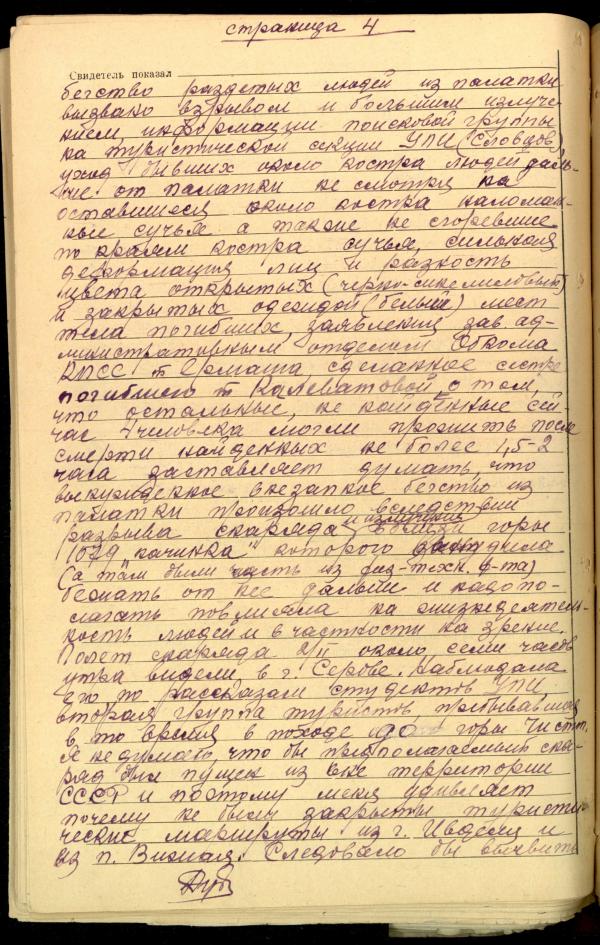 страница 4
Свидетель показал
бегство раздетых людей из палатки
вызвано взрывом и большим излуче-
нием, информации поисковой группы
на туристической секции УПИ (Слобцов),
уход бывших около костра людей даль-
ше от палатки не смотря на
оставшиеся около костра наломан-
ные сучья а также не сгоревшие
по краям костра сучья, сильная
деформация лиц и разность
цвета открытых (черно-синелиловый)
и закрытых одеждой (белый) мест
тела погибших, заявления зав. ад-
министративным отделом Обкома
КПСС т Ермаша, сделанное сестре
погибшего т Колеватовой о том,
что остальные, не найденные сей-
час 4 человека могли прожить после
смерти найденных не более 1,5-2
часа заставляет думать, что
вынужденное внезапное бегство из
палатки произошло вследствии
разрыва снаряда и излучения вблизи горы
1079 „начинка" которого
(а там были часть из физ-техн. ф-та)
бежать от нее дальше и надо по-
лагать повлияла на жизнедеятель-
ность людей и в частности на зрение.
Полет снаряда 2/II около семи часов
утра видели в г. Серове. Наблюдала
его по рассказам студентов УПИ,
вторая группа туристов, пребывавшая
в то время в походе до горы Чистоп.
Я не думаю что бы предполагаемый сна-
ряд был пущен из вне территории
СССР и поэтому меня удивляет
почему не были закрыты туристи-
ческие маршруты из г. Ивделя и
из п. Вижая. Следовало бы